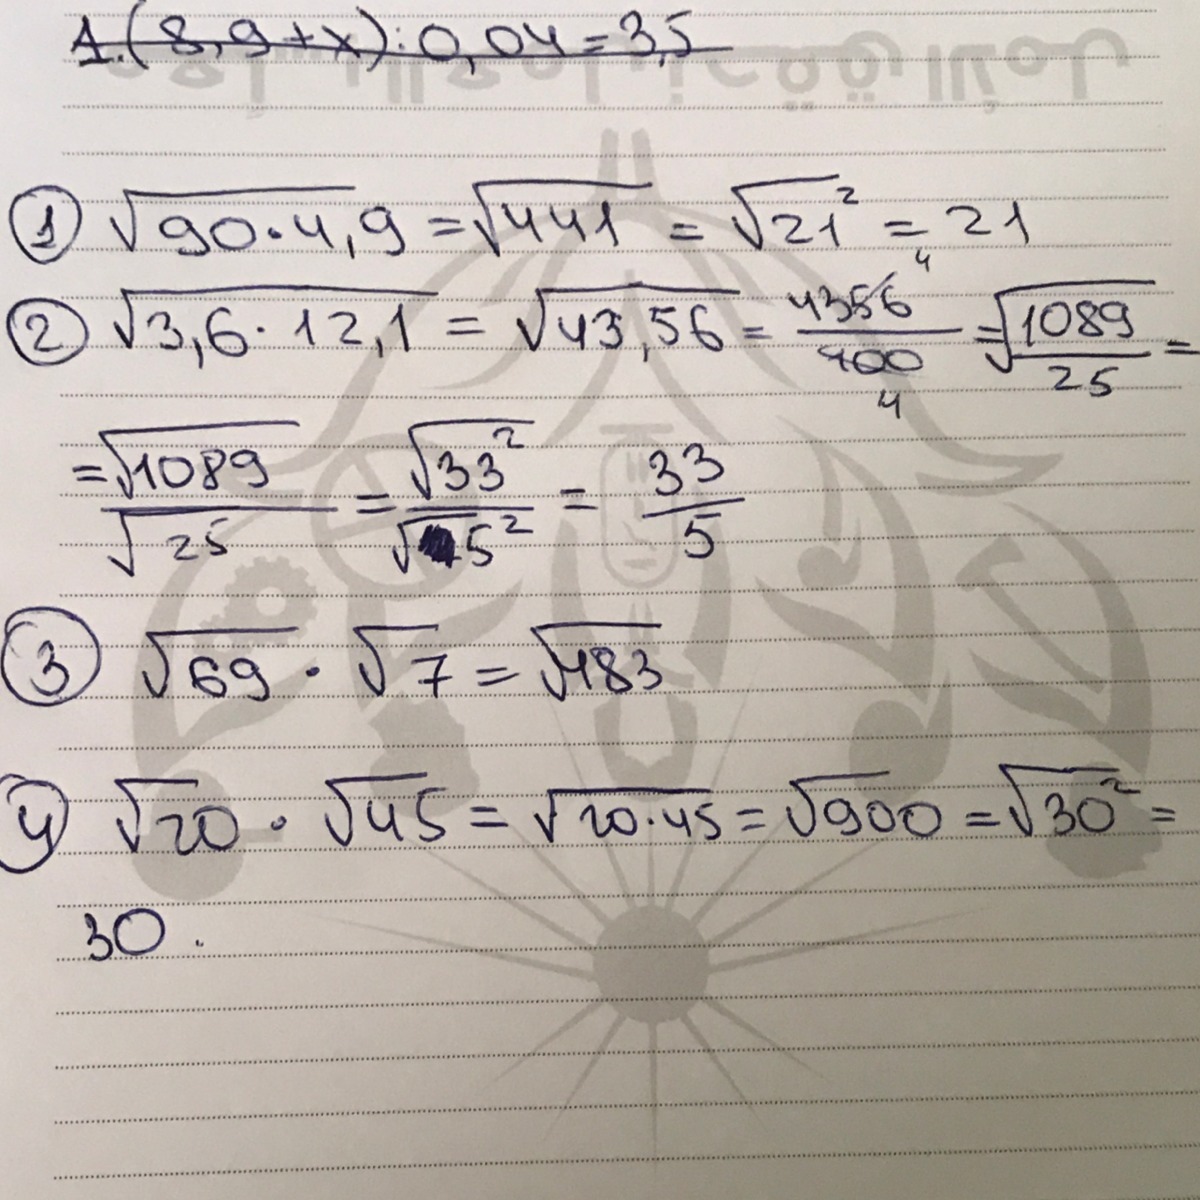 1.(8,9+x):0,04=3,5
① √90·4,9 = √441 = √21² = 21
② √3,6·12,1 = √43,56 = 4356 4/400 4 = √1089/25 =
= √1089/√25 = √33²/√5² = 33/5
③ √69 · √7 = √483
④ √20 · √45 = √20·45 = √900 = √30² =
30.